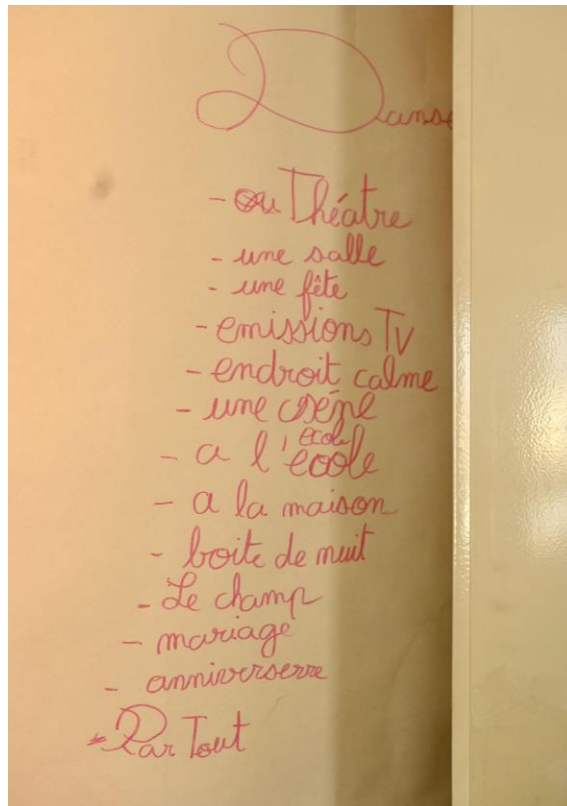 Danse
- au Théatre
- une salle
- une fête
- emissions TV
- endroit calme
- une cséne
- a l'école
- a la maison
- boite de nuit
- Le champ
- mariage
- anniverserre
- Par Tout